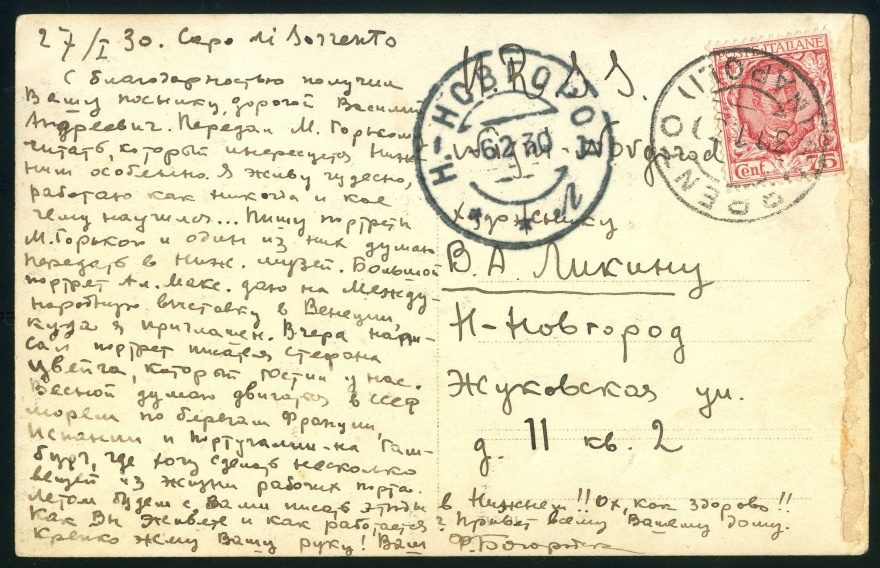 27/I 30. Capo di Sorrento
С благодарностью получил
Вашу посылку, дорогой Василий
Андреевич. Передал М. Горькому
читать, который интересуется Ниж-
ним особенно. Я живу чудесно,
работаю как никогда и кое
чему научился... Пишу портреты
М. Горького и один из них думаю
передать в Ниж. музей. Большой
портрет Ал. Макс. даю на Между-
народную выставку в Венеции,
куда я приглашен. Вчера напи-
сал портрет писателя Стефана
Цвейга, который гостил у нас.
Весной думаю двигаться в СССР
морем по берегам Франции,
Испании и Португалии - на Гам-
бург, где хочу сделать несколько
вещей из жизни рабочих порта.
Летом будем с Вами писать этюды в Нижнем!! Ох, как здорово!!
Как Вы живете и как работается? Привет всему Вашему дому.
Крепко жму Вашу руку! Ваш Ф. Богородск
U.R.S.S.
Nijni-Novgorod
художнику
В. А. Ликину
Н-Новгород
Жуковская ул.
д. 11 кв. 2
Н.-НОВГОРОД
6.2.30
POSTE ITALIANE
Cent. 75
(NAPOLI)